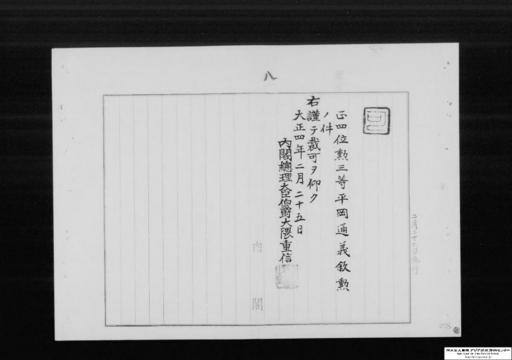 八
正四位勲三等平岡通義叙勲
ノ件
右謹テ裁可ヲ仰ク
大正四年二月二十五日
内閣總理大臣伯爵大隈重信
内閣